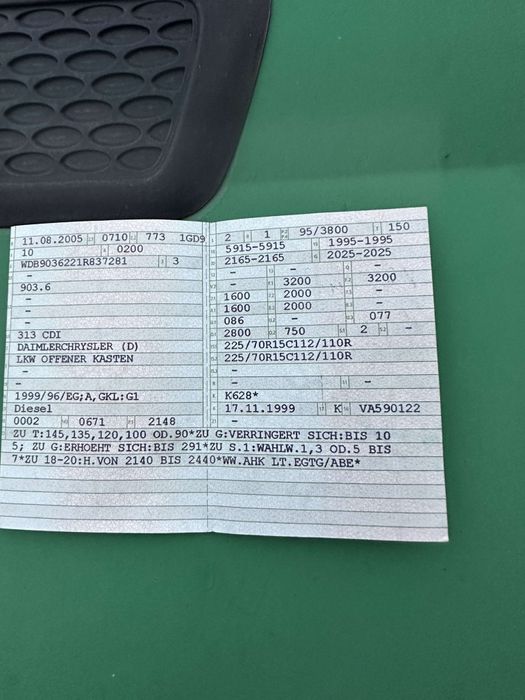 11.08.2005 0710 773 1GD9
10 0200
WDB9036221R837281 3
-
903.6
-
-
-
313 CDI
DAIMLERCHRYSLER (D)
LKW OFFENER KASTEN
-
-
1999/96/EG;A,GKL:G1
Diesel
0002 0671 2148
2 1 95/3800 150
5915-5915 1995-1995
2165-2165 2025-2025
- - -
- 3200 3200
1600 2000 -
1600 2000 -
086 - 077
2800 750 2 -
225/70R15C112/110R
225/70R15C112/110R
-
- -
K628*
17.11.1999 K VA590122
ZU T:145,135,120,100 OD.90*ZU G:VERRINGERT SICH:BIS 10
5; ZU G:ERHOEHT SICH:BIS 291*ZU S.1:WAHLW.1,3 OD.5 BIS
7*ZU 18-20:H.VON 2140 BIS 2440*WW.AHK LT.EGTG/ABE*